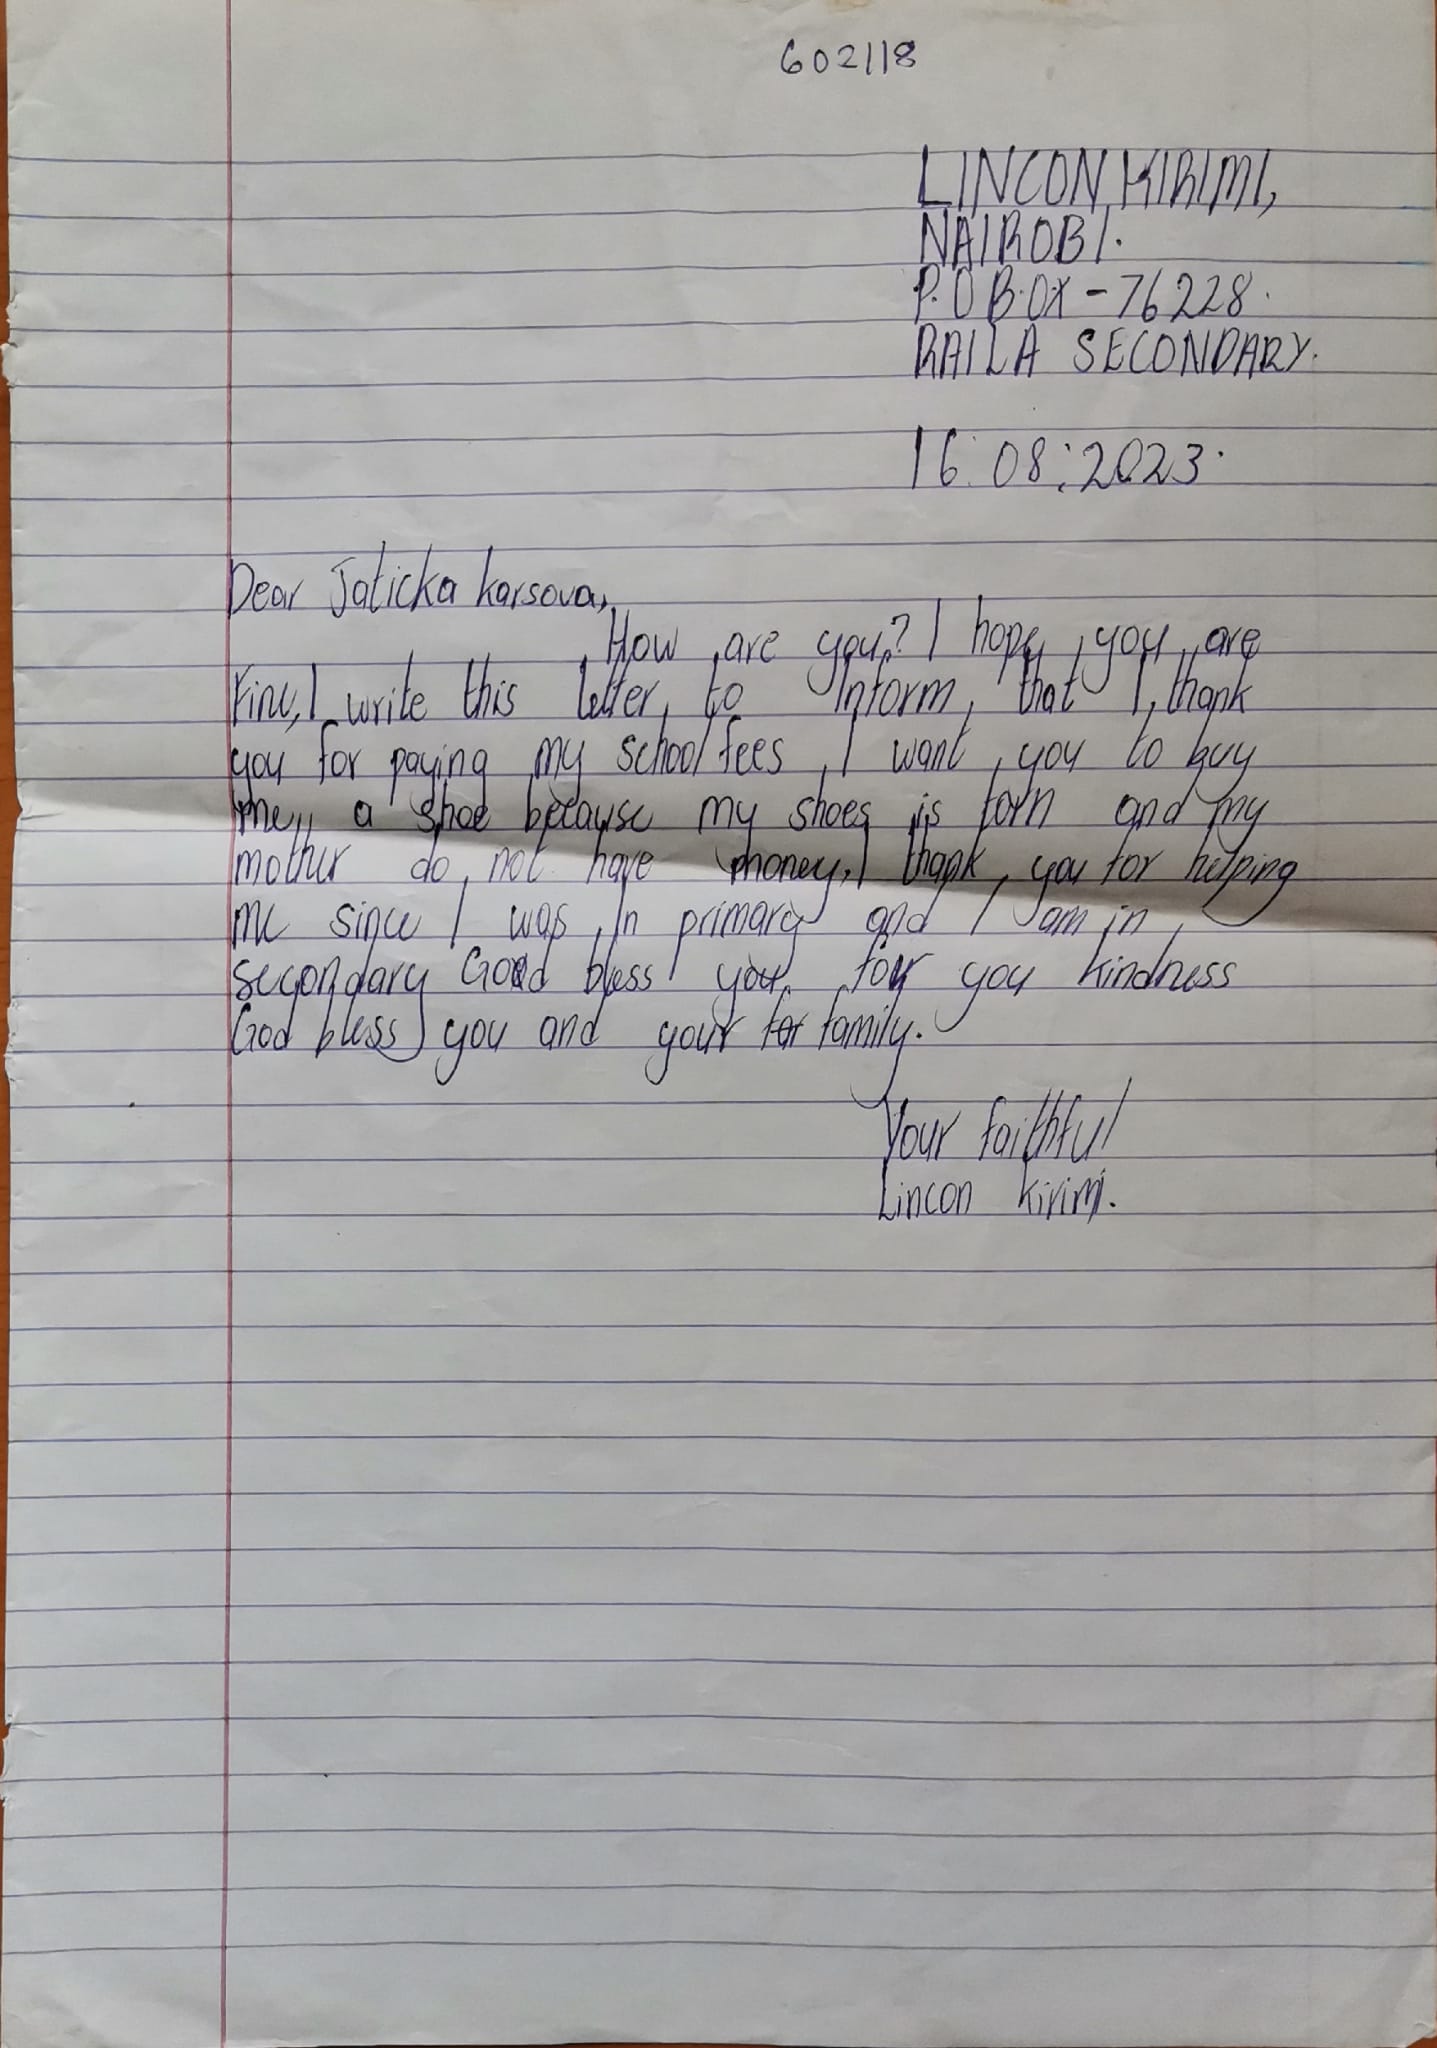 602118
LINCON KIRIMI,
NAIROBI.
P.O BOX - 76228.
RAILA SECONDARY.
16:08:2023.
Dear Jaticka karsova,
How are you? I hope you are
Fine, I write this letter to Inform that I thank
you for paying my school fees I want you to buy
me a shoe because my shoes is torn and my
mother do not have money, I thank you for helping
me since I was in primary and I am in
secondary God bless you for you kindness
God bless you and your family.
Your faithful
Lincon Kirimi.